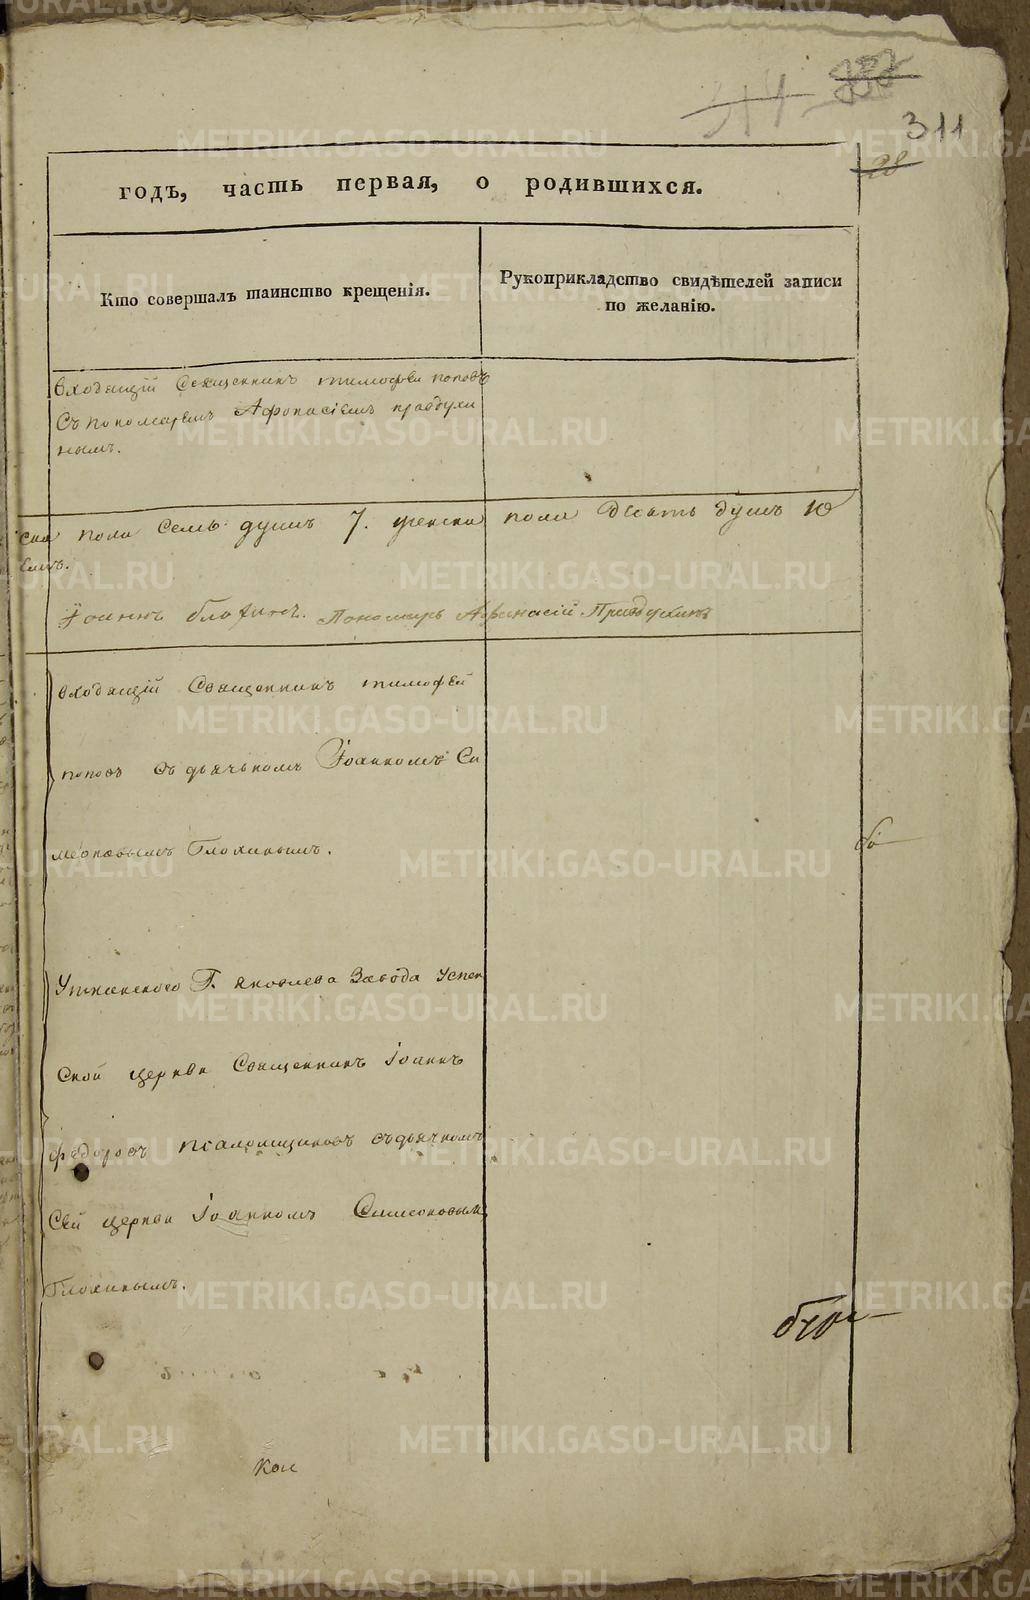 311
28
годъ, часть первая, о родившихся.
Кто совершалъ таинство крещенія.
Рукоприкладство свидѣтелей записи по желанію.
входящій Священникъ тимофей поповъ
Съ пономаремъ Афонасіемъ правдухи
нымъ.
ска пола семь душъ 7. женска пола Десять душъ 10
Іоаннъ блохинъ. Пономарь Афанасій Правдухинъ
входящій Священникъ тимофей
поповъ съ дьячькомъ Іоанномъ Си
меоновымъ Блохинымъ.
Уткинского Г. яковлева Завода Успен
ской церкви Священникъ Іоаннъ
федоровъ псаломщиковъ съ дьячкомъ
Сей церкви Іоанномъ Симеоновымъ
Блохинымъ.
METRIKI.GASO-URAL.RU